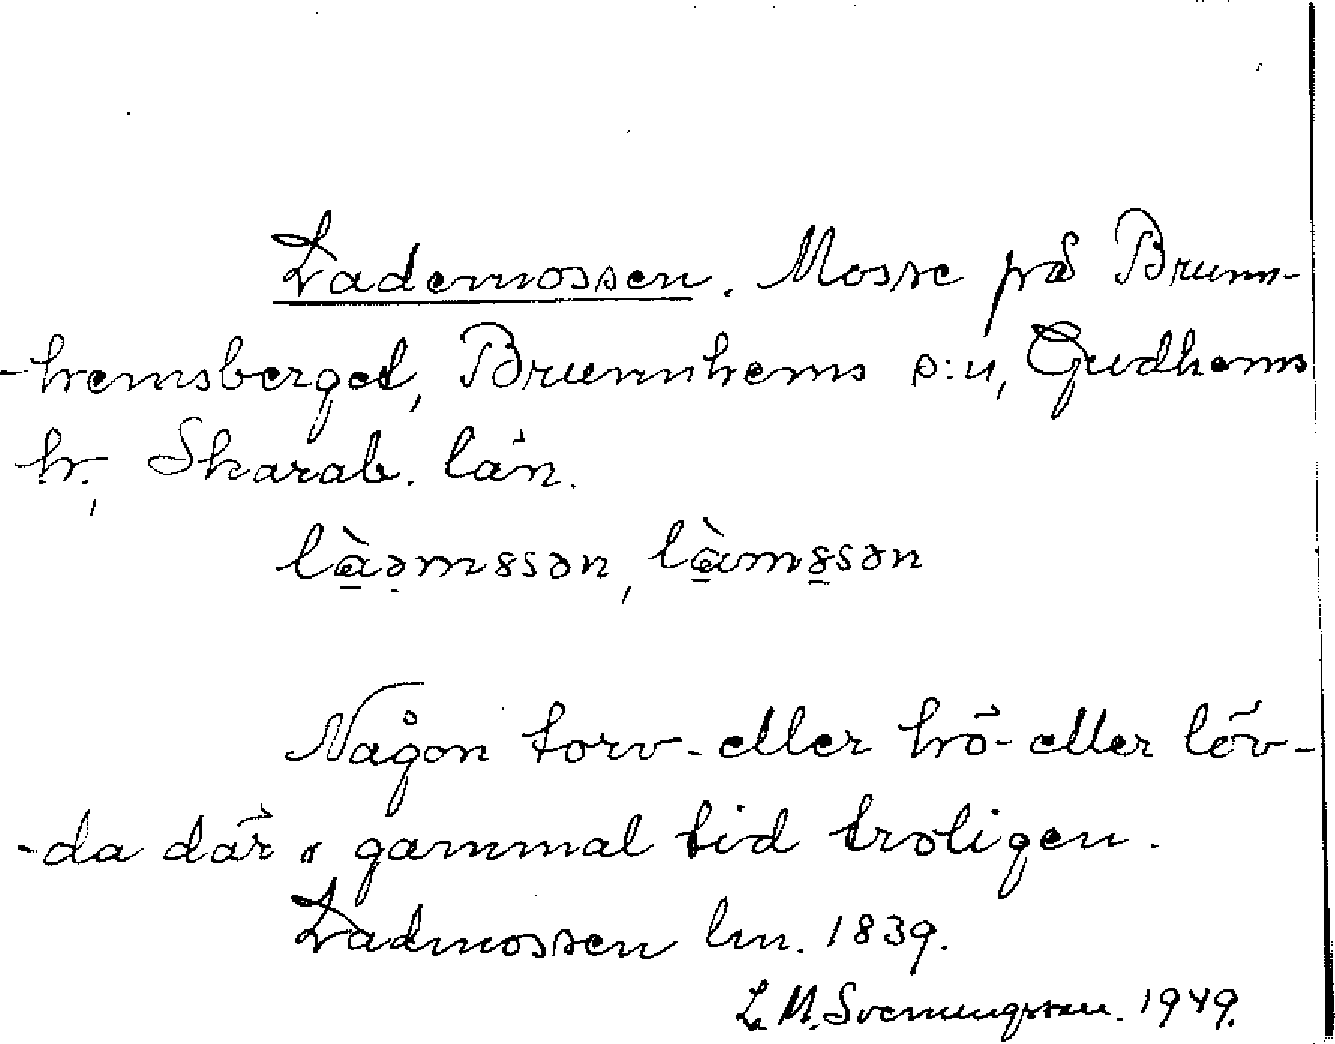 Lademossen. Mosse på Brunn-
-hemsberget, Brunnhems s:n, Gudhems
hr., Skarab. län.
là̱ə̣m8ssən, là̱m8̱sən
Någon torv- eller hö- eller löv-
-da där i gammal tid troligen.
Ladmossen lm. 1839.
L. M. Svenungsson. 1949.